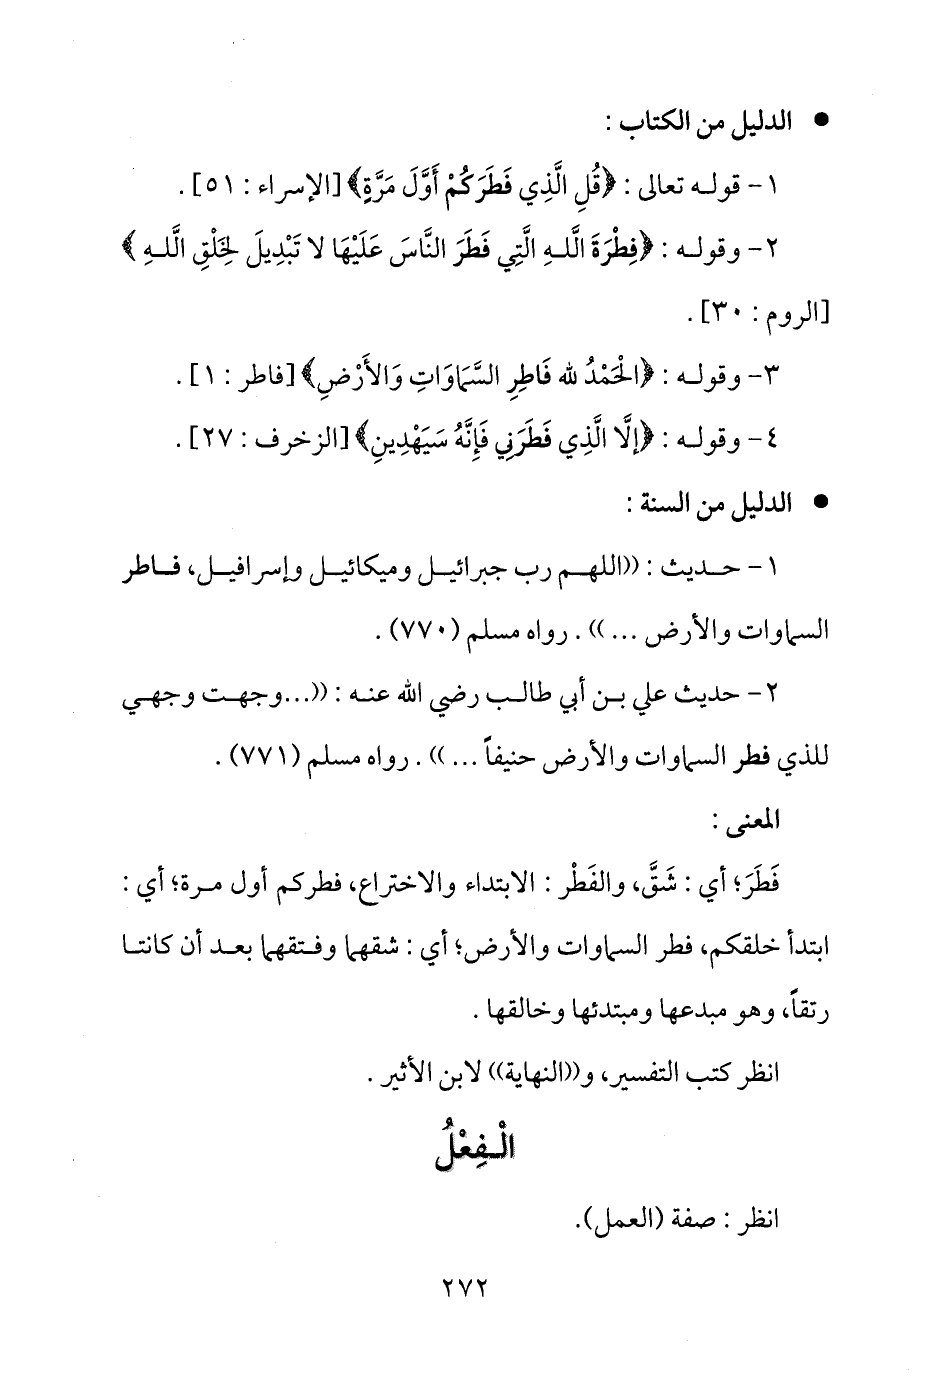 ● الدليل من الكتاب :
١- قولـه تعالى : ﴿قُلِ الَّذِي فَطَرَكُمْ أَوَّلَ مَرَّةٍ﴾ [الإسراء : ٥١] .
٢- وقولـه : ﴿فِطْرَةَ اللـهِ الَّتِي فَطَرَ النَّاسَ عَلَيْهَا لا تَبْدِيلَ لِخَلْقِ اللـهِ ﴾
[الروم : ٣٠] .
٣- وقولـه : ﴿الحَمْدُ لله فَاطِرِ السَّمَاوَاتِ وَالأَرْضِ﴾ [فاطر : ١] .
٤- وقولـه : ﴿إلَّا الَّذِي فَطَرَنِي فَإِنَّهُ سَيَهْدِينِ﴾ [الزخرف : ٢٧] .
● الدليل من السنة :
١- حـديث : ((اللهـم رب جبرائيـل وميكائيـل وإسرافيـل، فـاطر
السماوات والأرض ... )) . رواه مسلم (٧٧٠) .
٢- حديث علي بـن أبي طالـب رضي الله عنـه : ((...وجهـت وجهـي
للذي فطر السماوات والأرض حنيفاً ... )) . رواه مسلم (٧٧١) .
المعنى :
فَطَرَ؛ أي : شَقَّ، والفَطْر : الابتداء والاختراع، فطركم أول مـرة؛ أي :
ابتدأ خلقكم، فطر السماوات والأرض؛ أي : شقهما وفـتقهما بعـد أن كانتـا
رتقاً، وهو مبدعها ومبتدئها وخالقها .
انظر كتب التفسير، و((النهاية)) لابن الأثير .
الْـفِعْلُ
انظر : صفة (العمل).
٢٧٢